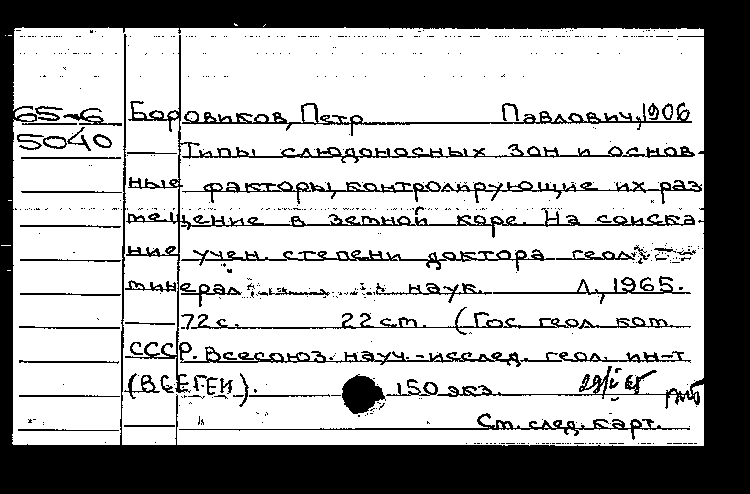 65-6 Боровиков, Петр Павлович, 1906
5040
Типы слюдоносных зон и основ-
ные факторы, контролирующие их раз
мещение в земной коре. На соиска-
ние учен. степени доктора геол.
минерал наук. Л., 1965.
72 с. 22 см. (Гос. геол. ком.
СССР. Всесоюз. науч.-исслед. геол. ин-т
(ВСЕГЕИ). 150 экз. 29/I 65
См. след. карт.